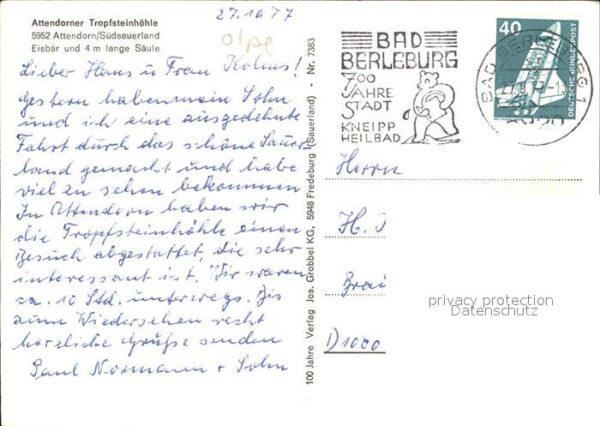 Attendorner Tropfsteinhöhle
5952 Attendorn/Südsauerland
Eisbär und 4 m lange Säule
27.10 77
olpe
Lieber Hans u Frau
Gestern haben mein Sohn
und ich eine ausgedehnte
Fahrt durch das schöne Sauer
land gemacht und habe
viel zu sehen bekommen
In Attendorn haben wir
die Tropfsteinhöhle einen
Besuch abgestattet, die sehr
interessant ist. Wir waren
ca. 10 Std. unterwegs. Bis
zum Wiedersehen recht
herzliche Grüße senden
Paul Normann + Sohn
100 Jahre Verlag Jos. Grobbel KG, 5948 Fredeburg (Sauerland) - Nr. 7383
BAD
BERLEBURG
700
JAHRE
STADT
KNEIPP
HEILBAD
40
DEUTSCHE BUNDESPOST
BAD BERLEBURG 1
Herrn
H. J
Brau
D 1000
privacy protection
Datenschutz